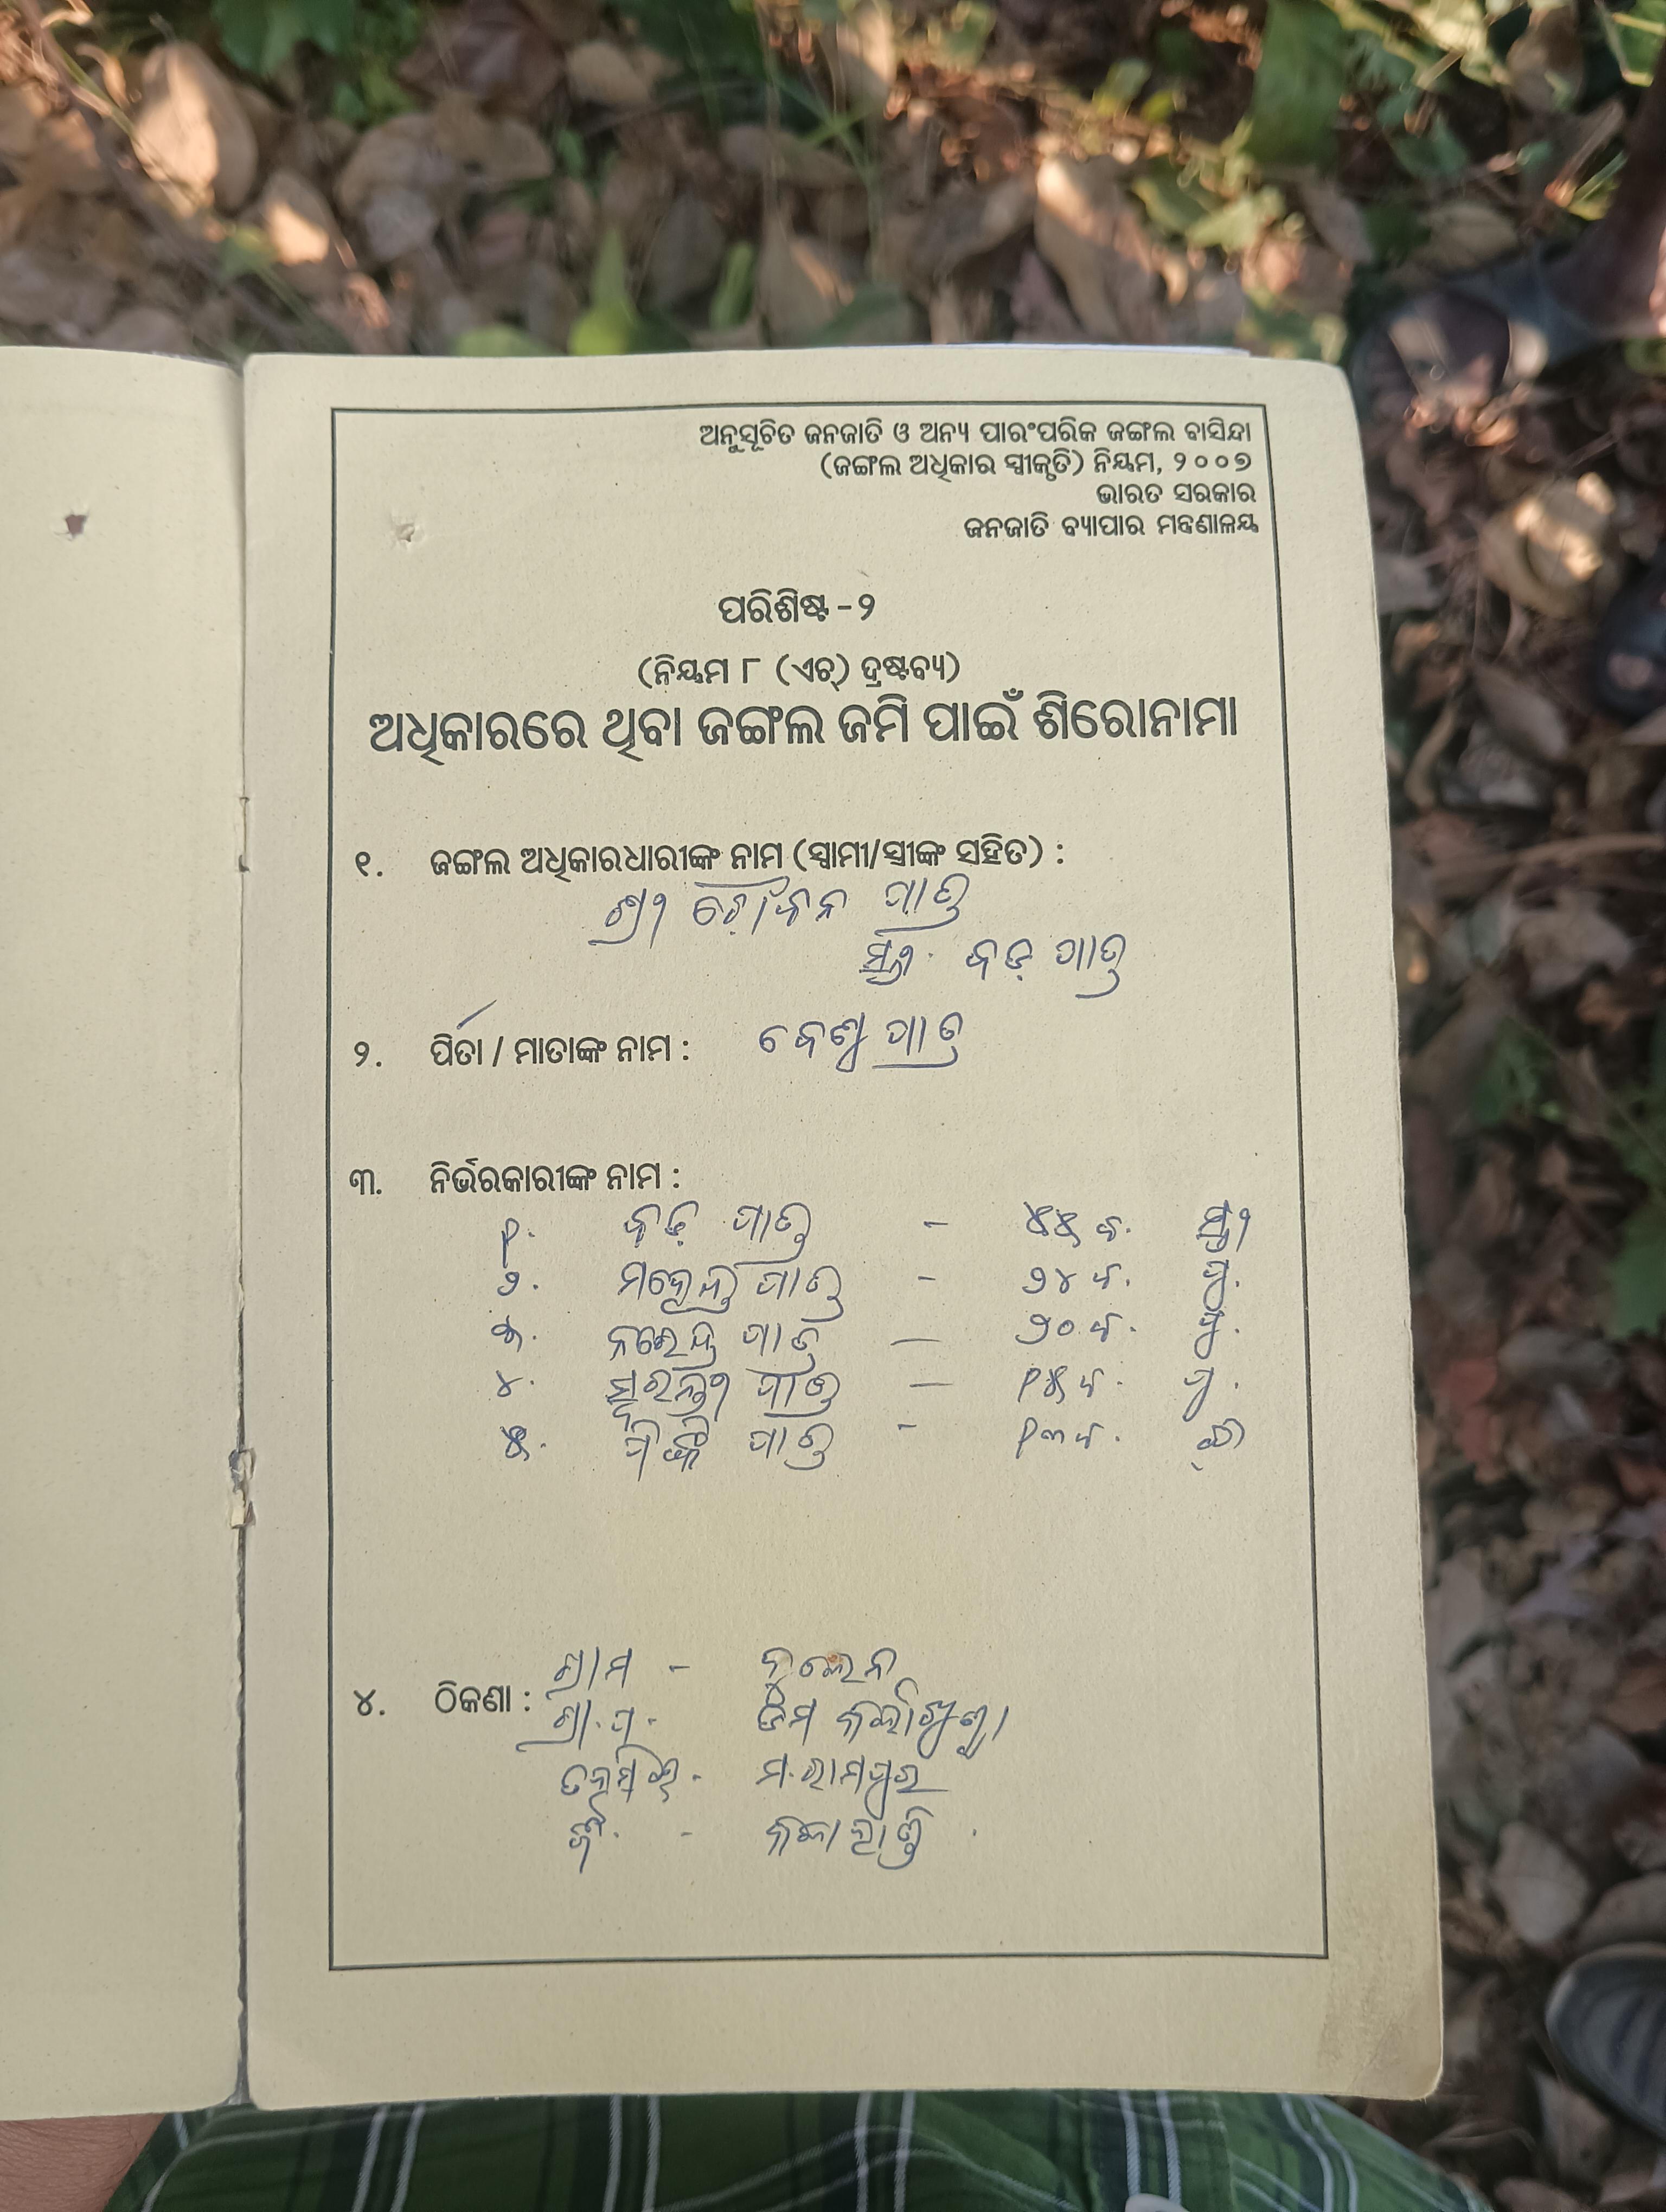 ଅନୁସୂଚିତ ଜନଜାତି ଓ ଅନ୍ୟ ପାରଂପରିକ ଜଙ୍ଗଲ ବାସିନ୍ଦା
(ଜଙ୍ଗଲ ଅଧିକାର ସ୍ୱୀକୃତି) ନିୟମ, ୨୦୦୭
ଭାରତ ସରକାର
ଜନଜାତି ବ୍ୟାପାର ମନ୍ତ୍ରଣାଳୟ
ପରିଶିଷ୍ଟ - ୨
(ନିୟମ ୮ (ଏଚ୍) ଦ୍ରଷ୍ଟବ୍ୟ)
ଅଧିକାରରେ ଥିବା ଜଙ୍ଗଲ ଜମି ପାଇଁ ଶିରୋନାମା
୧. ଜଙ୍ଗଲ ଅଧିକାରଧାରୀଙ୍କ ନାମ (ସ୍ୱାମୀ/ସ୍ତ୍ରୀଙ୍କ ସହିତ) :
ଶ୍ରୀ ପାତ୍ର
ସ୍ତ୍ରୀ. ପାତ୍ର
୨. ପିତା / ମାତାଙ୍କ ନାମ : ପାତ୍ର
୩. ନିର୍ଭରକାରୀଙ୍କ ନାମ :
୧. ପାତ୍ର - ୪୫ ବ. ସ୍ତ୍ରୀ
୨. ମହେନ୍ଦ୍ର ପାତ୍ର - ୨୪ ବ. ପୁ.
୩. ନରେନ୍ଦ୍ର ପାତ୍ର - ୨୦ ବ. ପୁ.
୪. ପାତ୍ର - ୧୫ ବ. ପୁ.
୫. ପିଙ୍କି ପାତ୍ର - ୧୩ ବ.
ଗ୍ରାମ -
୪. ଠିକଣା : ଗ୍ରା.ପ.
ମ.ରାମପୁର
ଜି. - କଳାହାଣ୍ଡି